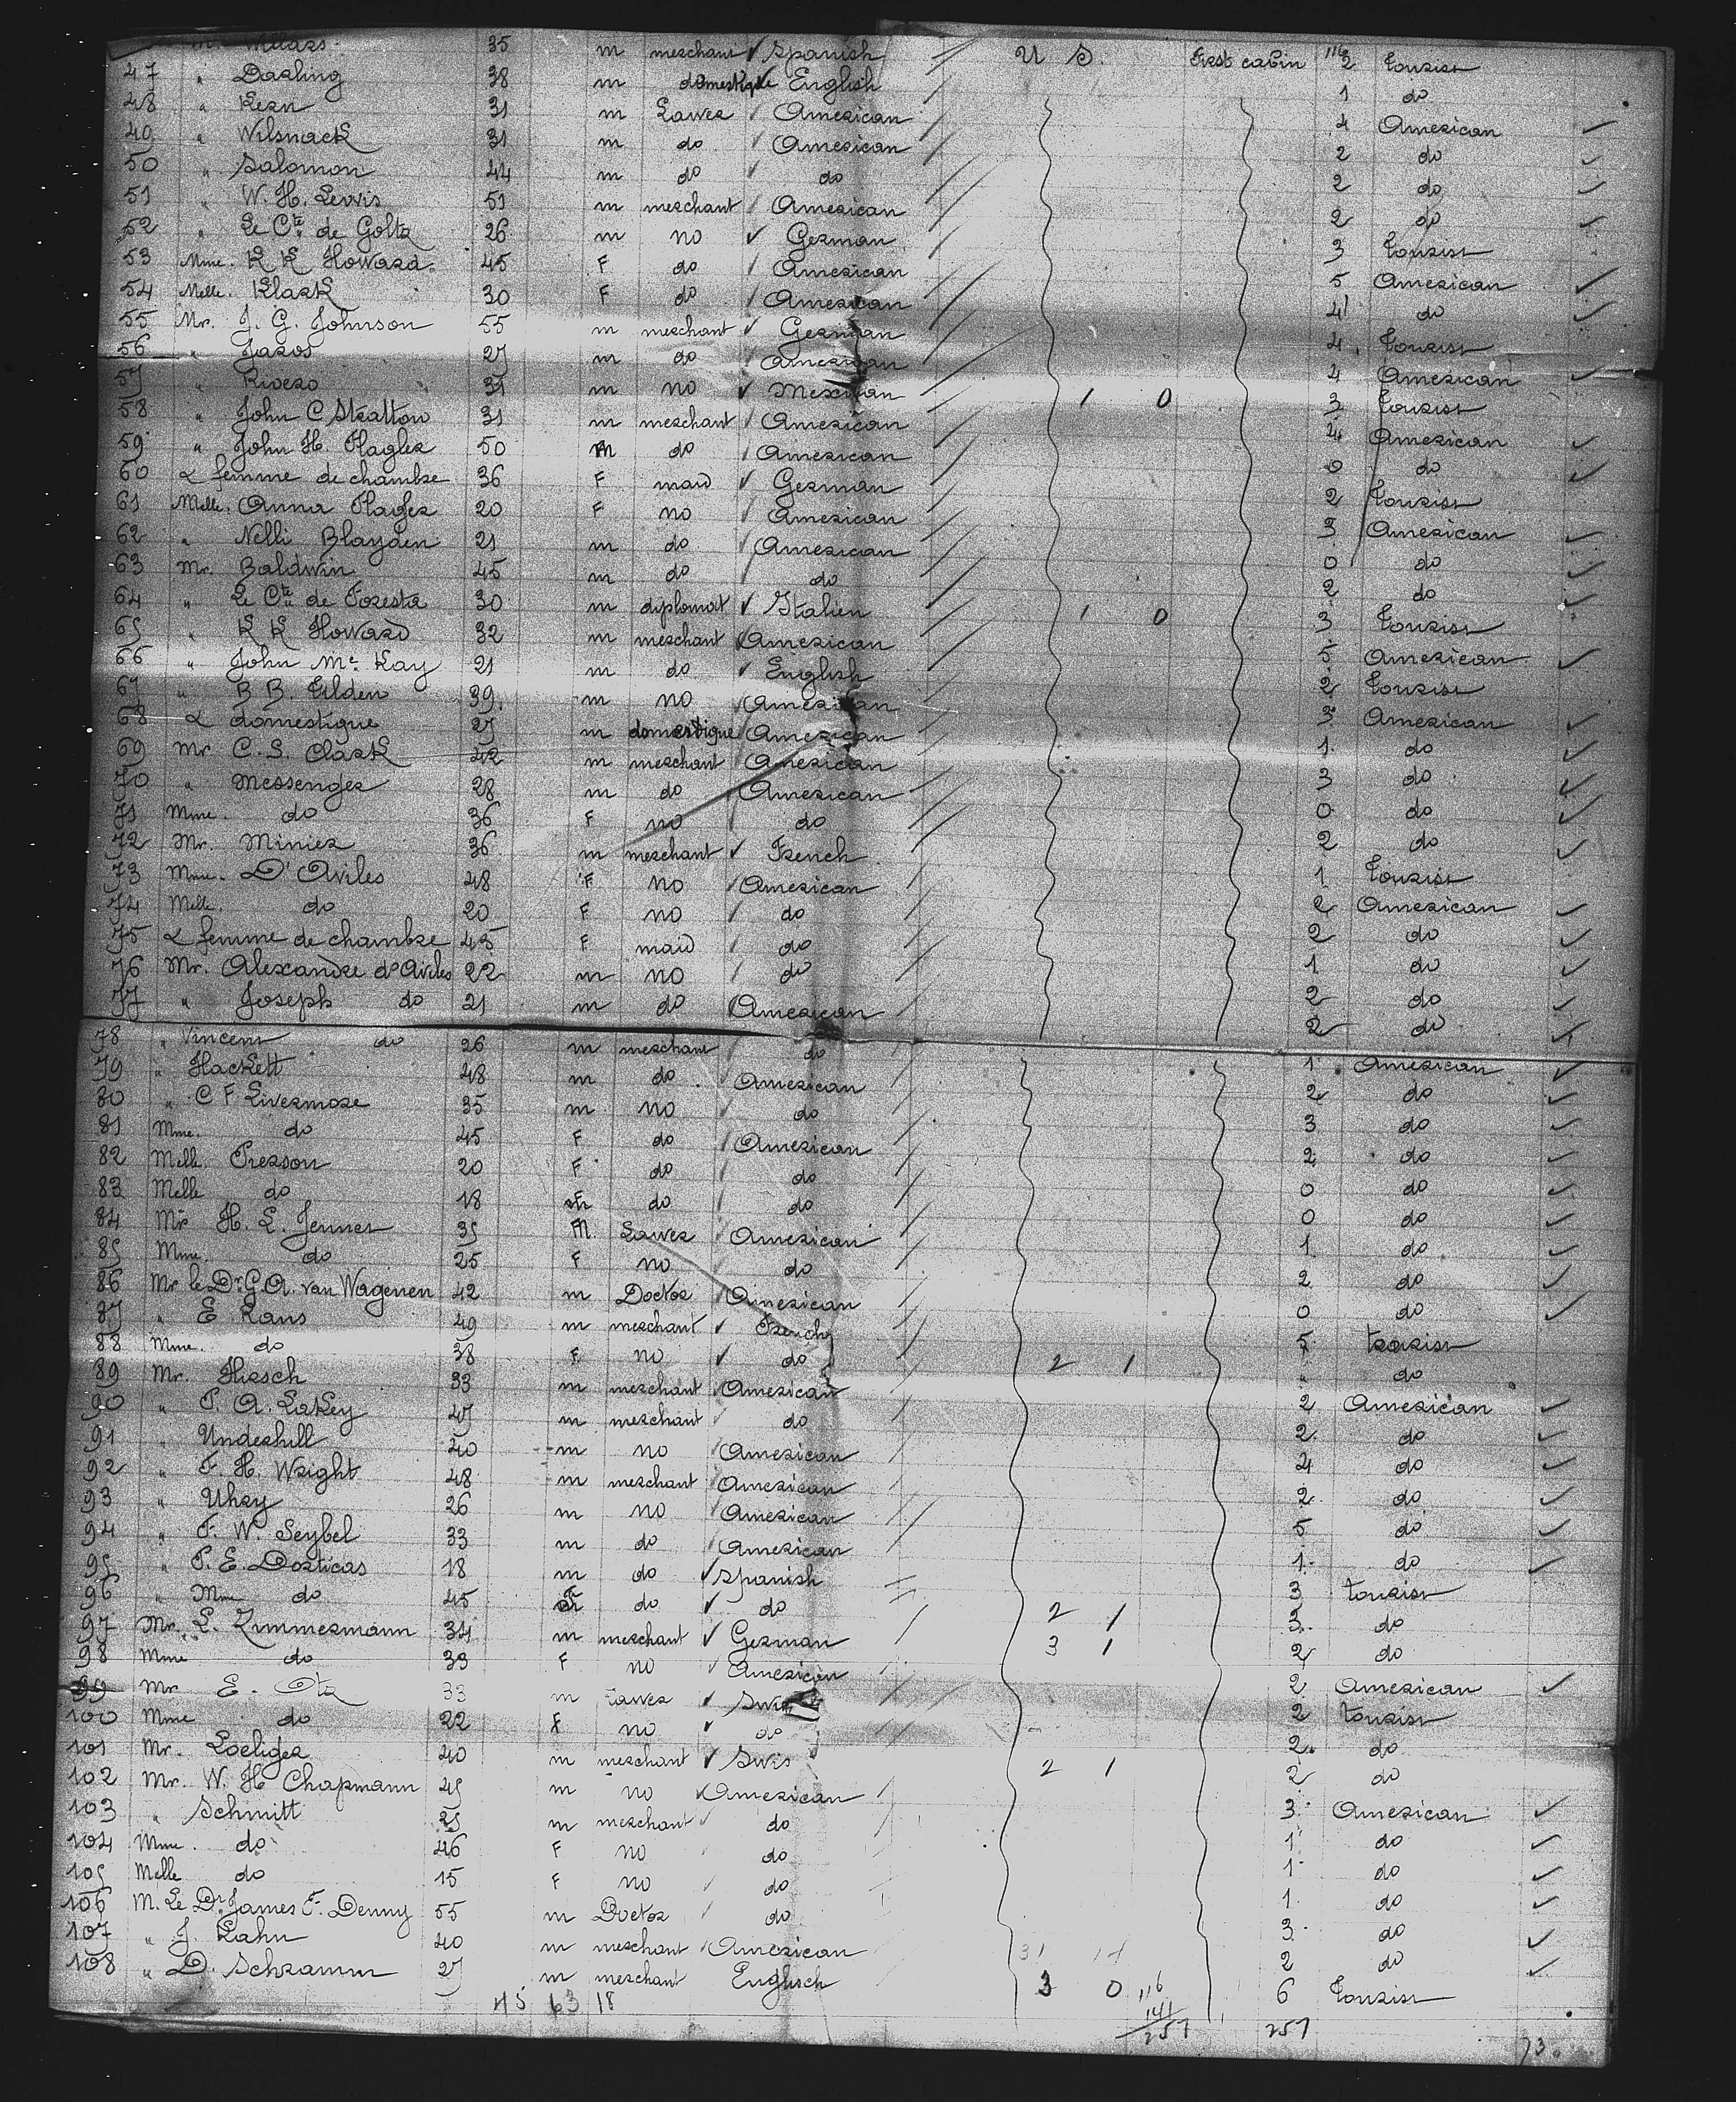 35 m merchant Spanish U S. First cabin 116 2 tourist
47 " Darling 38 m domestique English 1 do
48 " Kern 31 m Lawer American 4 American
49 " Wilsnack 31 m do American 2 do
50 " Salomon 44 m do do 2 do
51 " W. H. Lewis 51 m merchant American 2 do
52 " Le Cte de Goltz 26 m no German 3 tourist
53 Mme. K K Howard 45 F do American 5 American
54 Melle. Klark 30 F do American 4 do
55 Mr. J. G. Johnson 55 m merchant German 4 tourist
56 " Jaros 27 m do American 4 American
57 " Rivero 31 m no Mexican 1 0 3 tourist
58 " John C Stratton 31 m merchant American 4 American
59 " John H. Flagler 50 m do American 0 do
60 & femme de chambre 36 F maid German 2 tourist
61 Melle. Anna Flagler 20 F no American 3 American
62 " Nelli Blayden 21 m do American 0 do
63 Mr. Baldwin 45 m do do 2 do
64 " Le Cte de Foresta 30 m diplomat Italien 1 0 3 tourist
65 " K K Howard 32 m merchant American 5 American
66 " John Mc Kay 21 m do English 2 tourist
67 " B B. Tilden 39 m no American 3 American
68 & domestique 27 m domestique American 1 do
69 Mr C. S. Clark 42 m merchant American 3 do
70 " Messenger 28 m do American 0 do
71 Mme. do 36 F no do 2 do
72 Mr. Minier 36 m merchant French 1 tourist
73 Mme. D'Aviles 48 F no American 2 American
74 Melle. do 20 F no do 2 do
75 & femme de chambre 45 F maid do 1 do
76 Mr. Alexandre d'Aviles 22 m no do 2 do
77 " Joseph do 21 m do American 2 do
78 " Vincent do 26 m merchant do 1 American
79 " Hackett 48 m do American 2 do
80 " C F Livermore 35 m no do 3 do
81 Mme. do 45 F do American 2 do
82 Melle. Pierson 20 F do do 0 do
83 Melle do 18 do do 0 do
84 Mr H. L. Jenner 35 M. Lawer American 1 do
85 Mme. do 25 F no do 2 do
86 Mr le Dr G. A. van Wagenen 42 m Doctor American 0 do
87 " E. Kans 49 m merchant French 5 tourist
88 Mme. do 38 F no do 2 1 " do
89 Mr. Hirsch 33 m merchant American 2 American
90 " P. A. Lakey 47 m merchant do 2 do
91 " Underhill 40 m no American 4 do
92 " F. H. Wright 48 m merchant American 2 do
93 " Uhry 26 m no American 5 do
94 " F. W. Seybel 33 m do American 1 do
95 " P. E. Dorticas 18 m do Spanish 3 tourist
96 " Mme do 45 F do do 2 1 3 do
97 Mr. L. Zimmermann 34 m merchant German 3 1 2 do
98 Mme do 33 F no American 2 American
99 Mr E. Otz 33 m Lawer 2 tourist
100 Mme do 22 F no do 2 do
101 Mr. Loeliger 40 m merchant Swis 2 1 2 do
102 Mr. W. H Chapmann 45 m no American 3 American
103 " Schmitt 25 m merchant do 1 do
104 Mme. do 46 F no do 1 do
105 Melle do 15 F no do 1 do
106 M. Le Dr James F. Denny 55 m Doctor do 3 do
107 " J. Kahn 40 m merchant American 2 do
108 " D. Schramm 27 m merchant Englisch 3 0 6 tourist
45 63 18 116
141
257 257